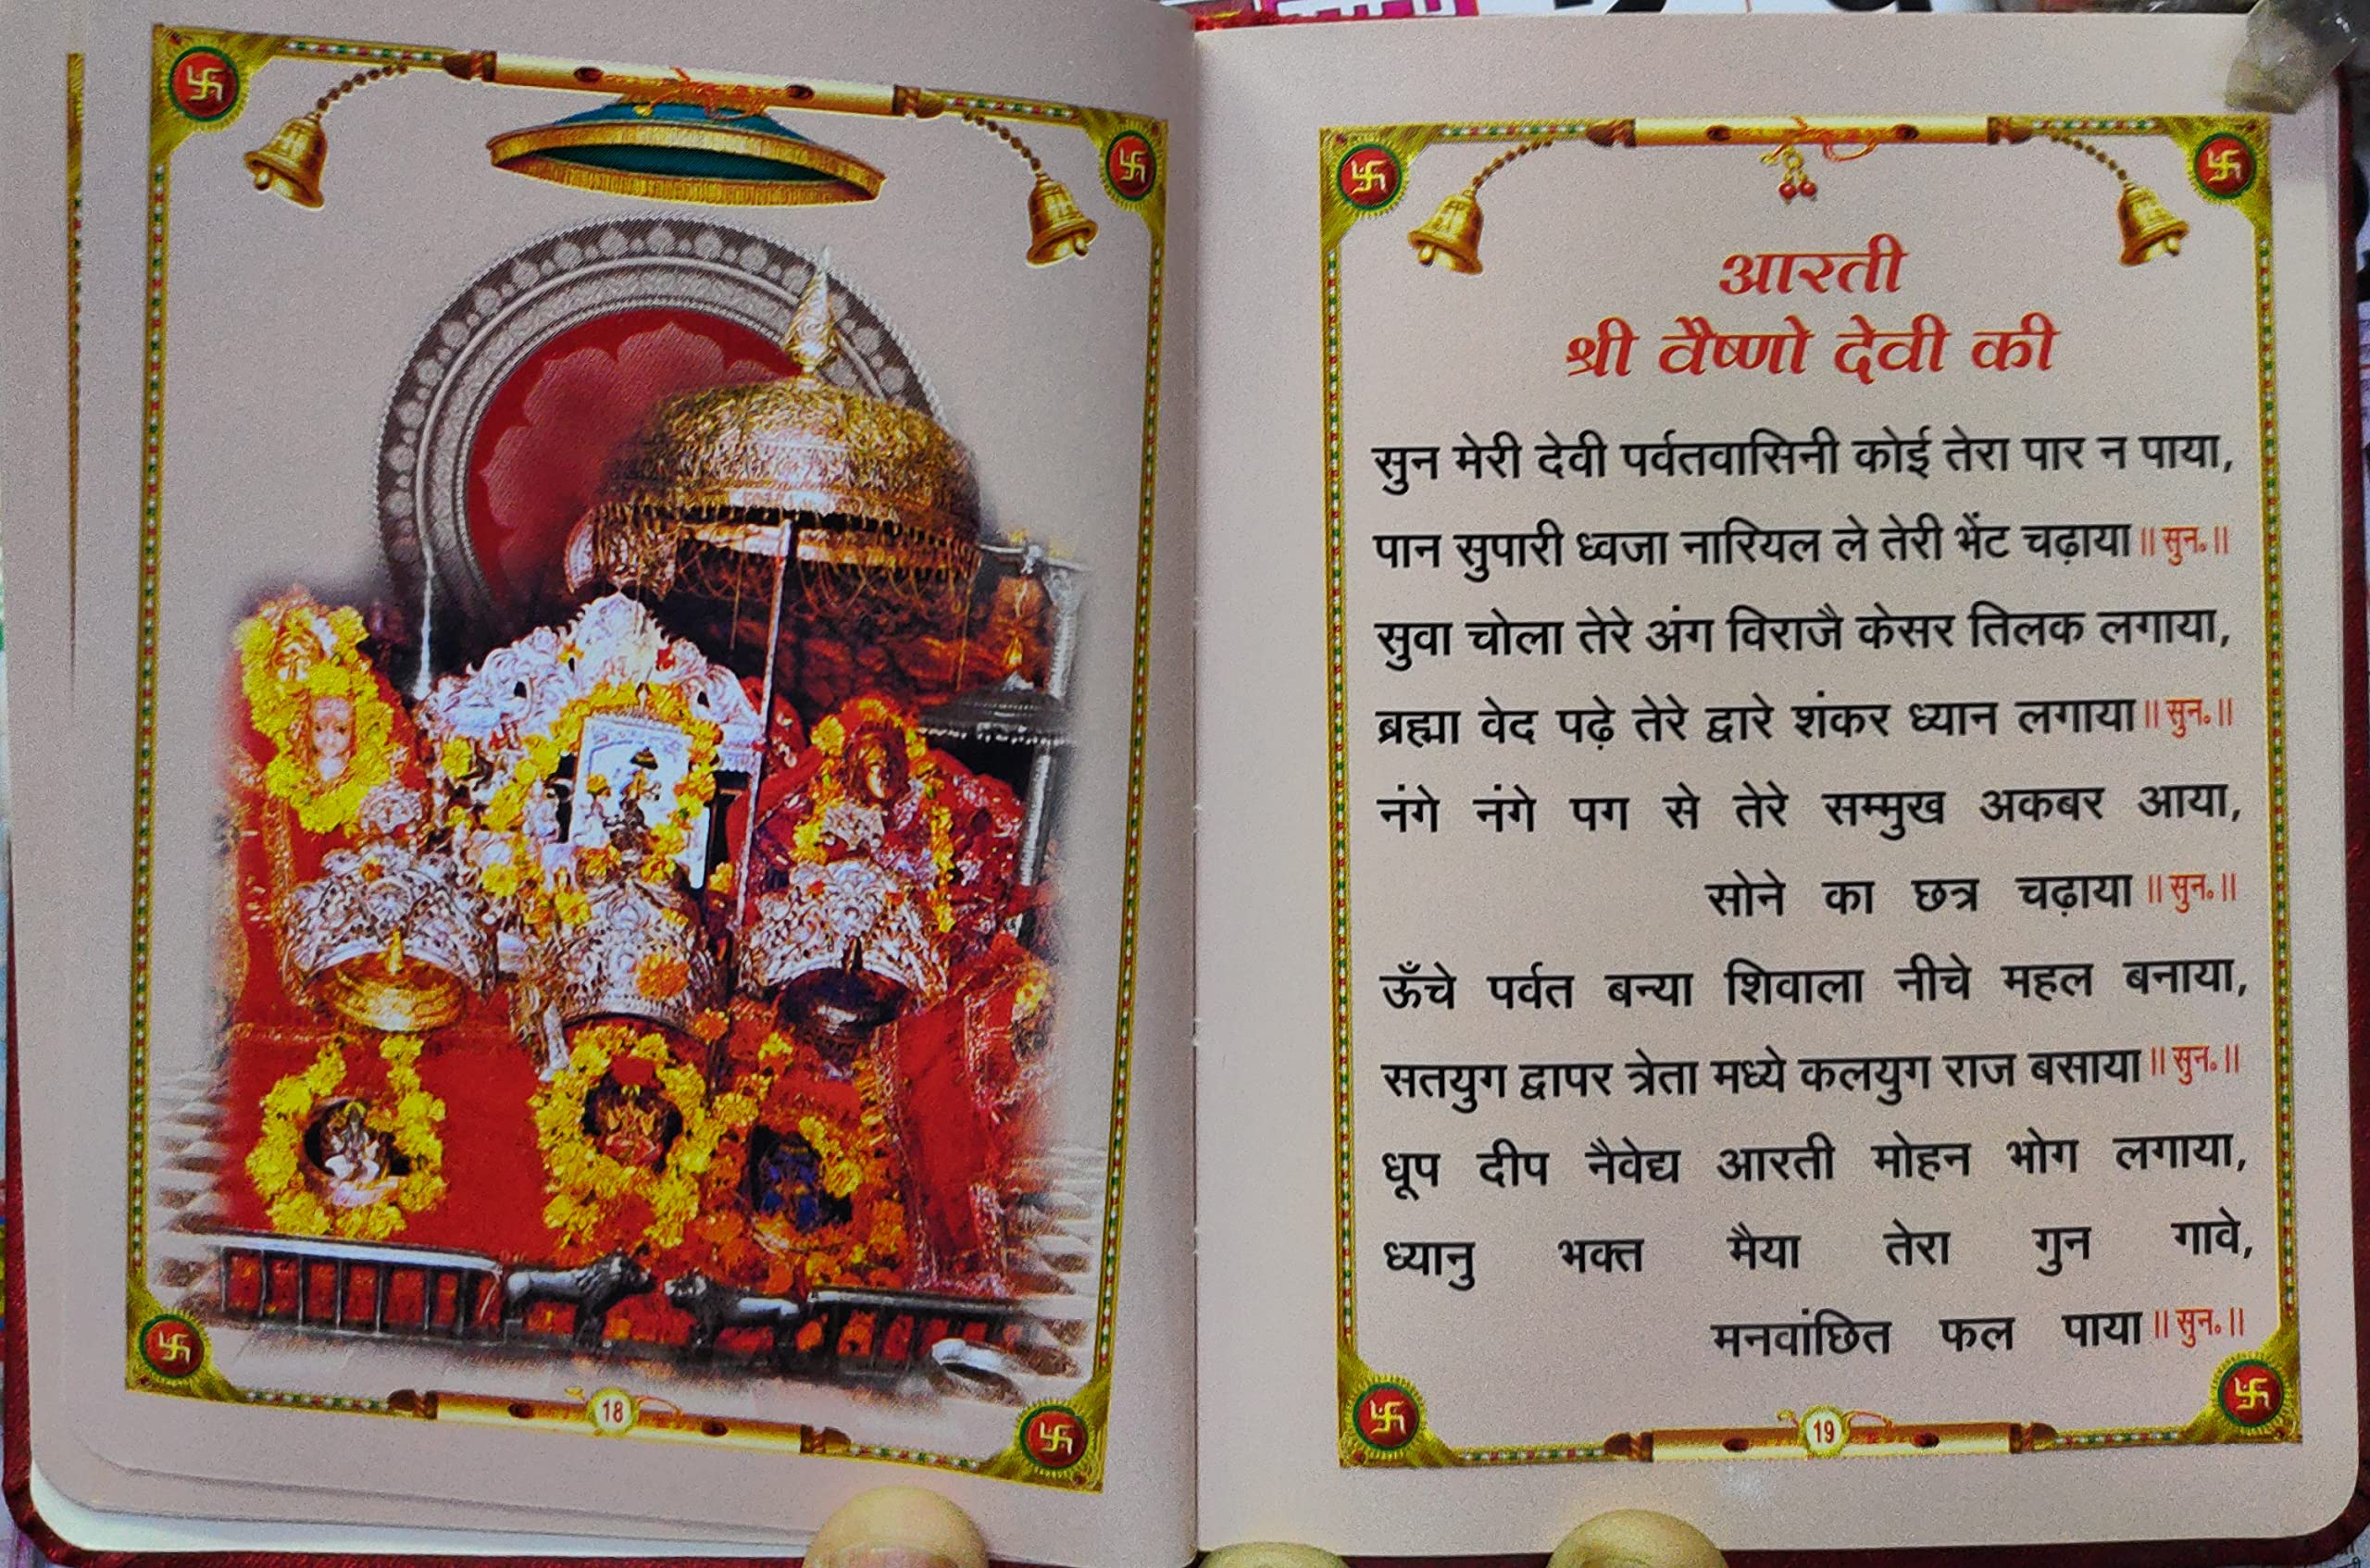 18
आरती
श्री वैष्णो देवी की
सुन मेरी देवी पर्वतवासिनी कोई तेरा पार न पाया,
पान सुपारी ध्वजा नारियल ले तेरी भेंट चढ़ाया॥सुन॰॥
सुवा चोला तेरे अंग विराजै केसर तिलक लगाया,
ब्रह्मा वेद पढ़े तेरे द्वारे शंकर ध्यान लगाया॥सुन॰॥
नंगे नंगे पग से तेरे सम्मुख अकबर आया,
सोने का छत्र चढ़ाया॥सुन॰॥
ऊँचे पर्वत बन्या शिवाला नीचे महल बनाया,
सतयुग द्वापर त्रेता मध्ये कलयुग राज बसाया॥सुन॰॥
धूप दीप नैवेद्य आरती मोहन भोग लगाया,
ध्यानु भक्त मैया तेरा गुन गावे,
मनवांछित फल पाया॥सुन॰॥
19